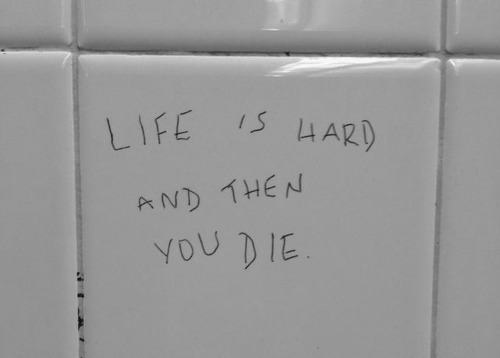 LIFE IS HARD
AND THEN
YOU DIE.